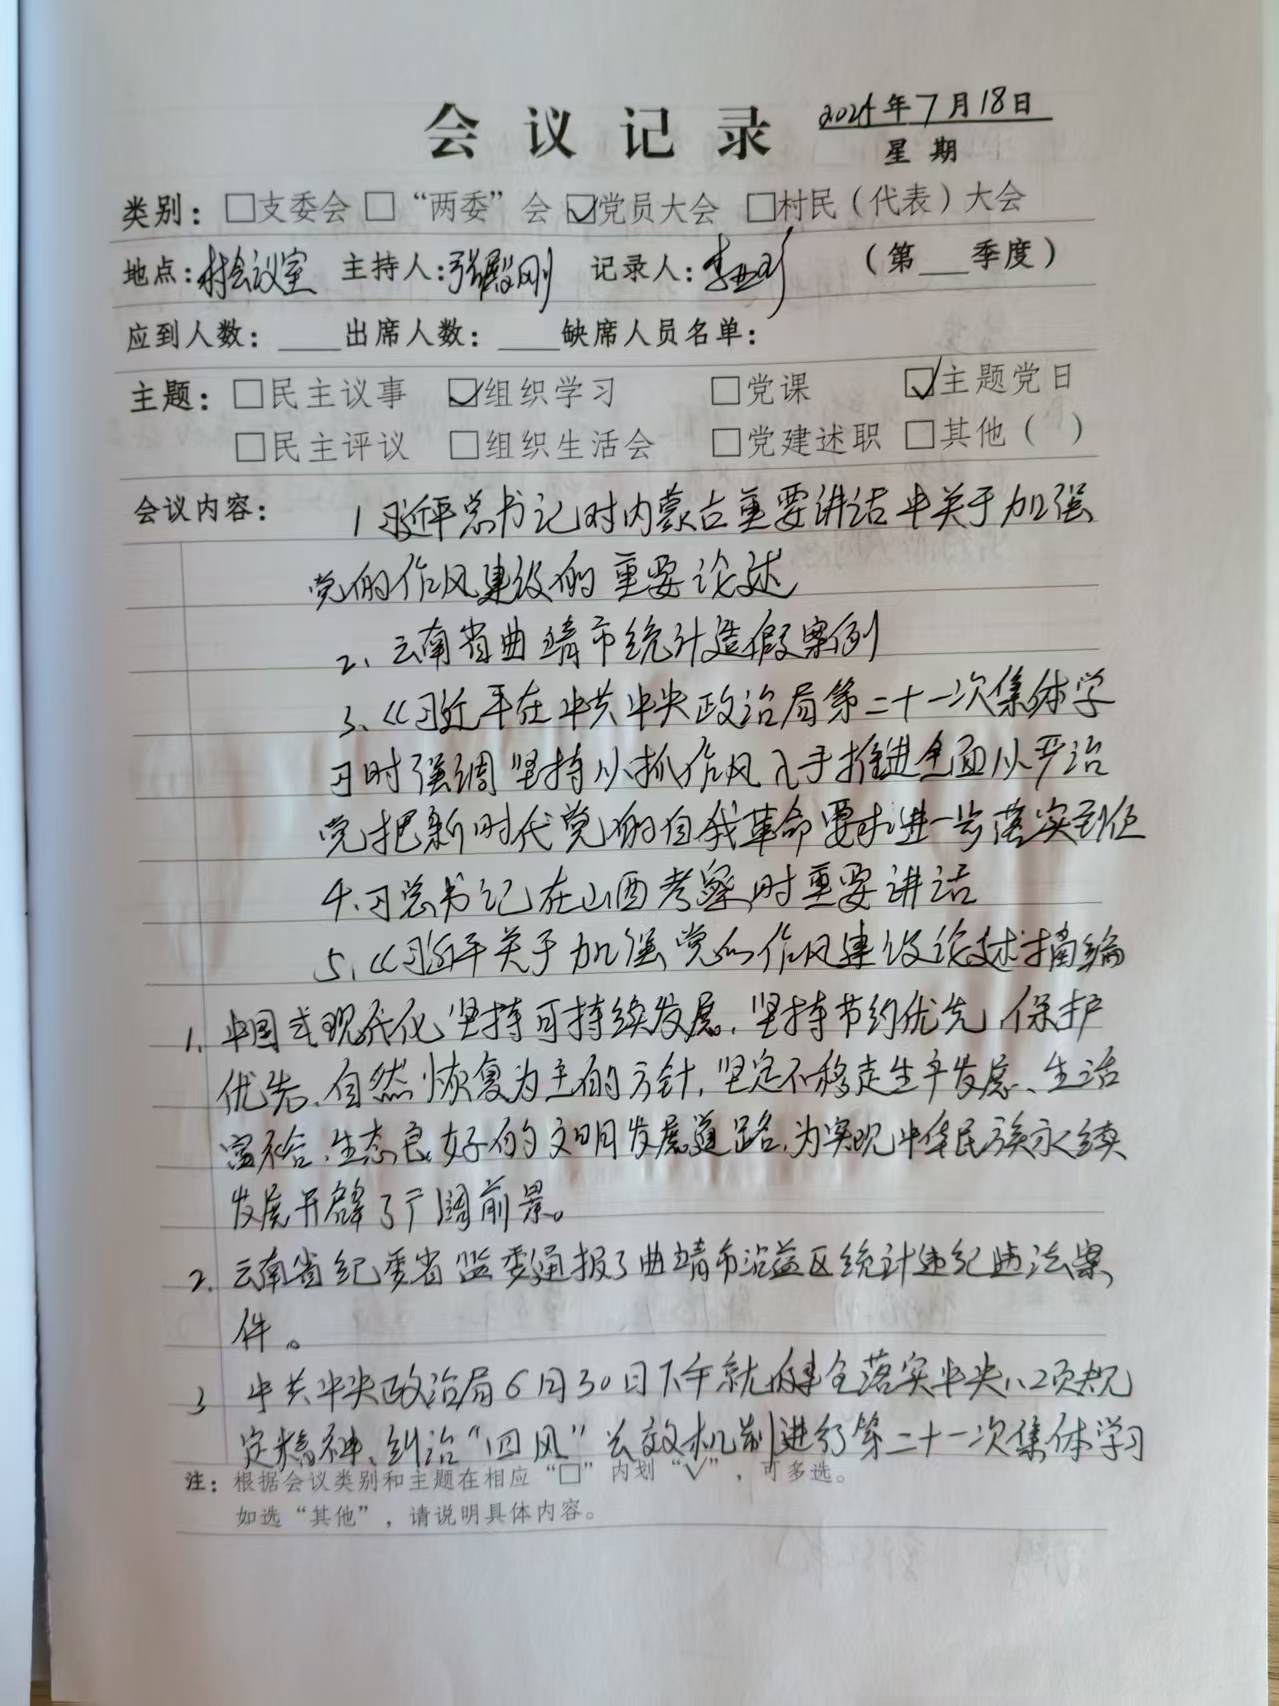 会议记录 2025年7月18日
星期
类别：□支委会 □“两委”会 ☑党员大会 □村民（代表）大会
地点：村会议室 主持人：张殿刚 记录人：李 （第___季度）
应到人数：____出席人数：____缺席人员名单：
主题：□民主议事 ☑组织学习 □党课 ☑主题党日
□民主评议 □组织生活会 □党建述职 □其他（ ）
会议内容： 1习近平总书记对内蒙古重要讲话中关于加强
党的作风建设的重要论述
2、云南省曲靖市统计造假案例
3、《习近平在中共中央政治局第二十一次集体学
习时强调坚持以抓作风入手推进全面从严治
党把新时代党的自我革命要求进一步落实到位
4、习总书记在山西考察时重要讲话
5、《习近平关于加强党的作风建设论述摘编
1、中国式现代化坚持可持续发展，坚持节约优先、保护
优先、自然恢复为主的方针，坚定不移走生产发展、生活
富裕、生态良好的文明发展道路，为实现中华民族永续
发展开辟了广阔前景。
2、云南省纪委省监委通报了曲靖市沾益区统计违纪违法案
件。
3 中共中央政治局6月30日下午就健全落实中央八项规
定精神、纠治“四风”长效机制进行第二十一次集体学习
注：根据会议类别和主题在相应“□”内划“√”，可多选。
如选“其他”，请说明具体内容。